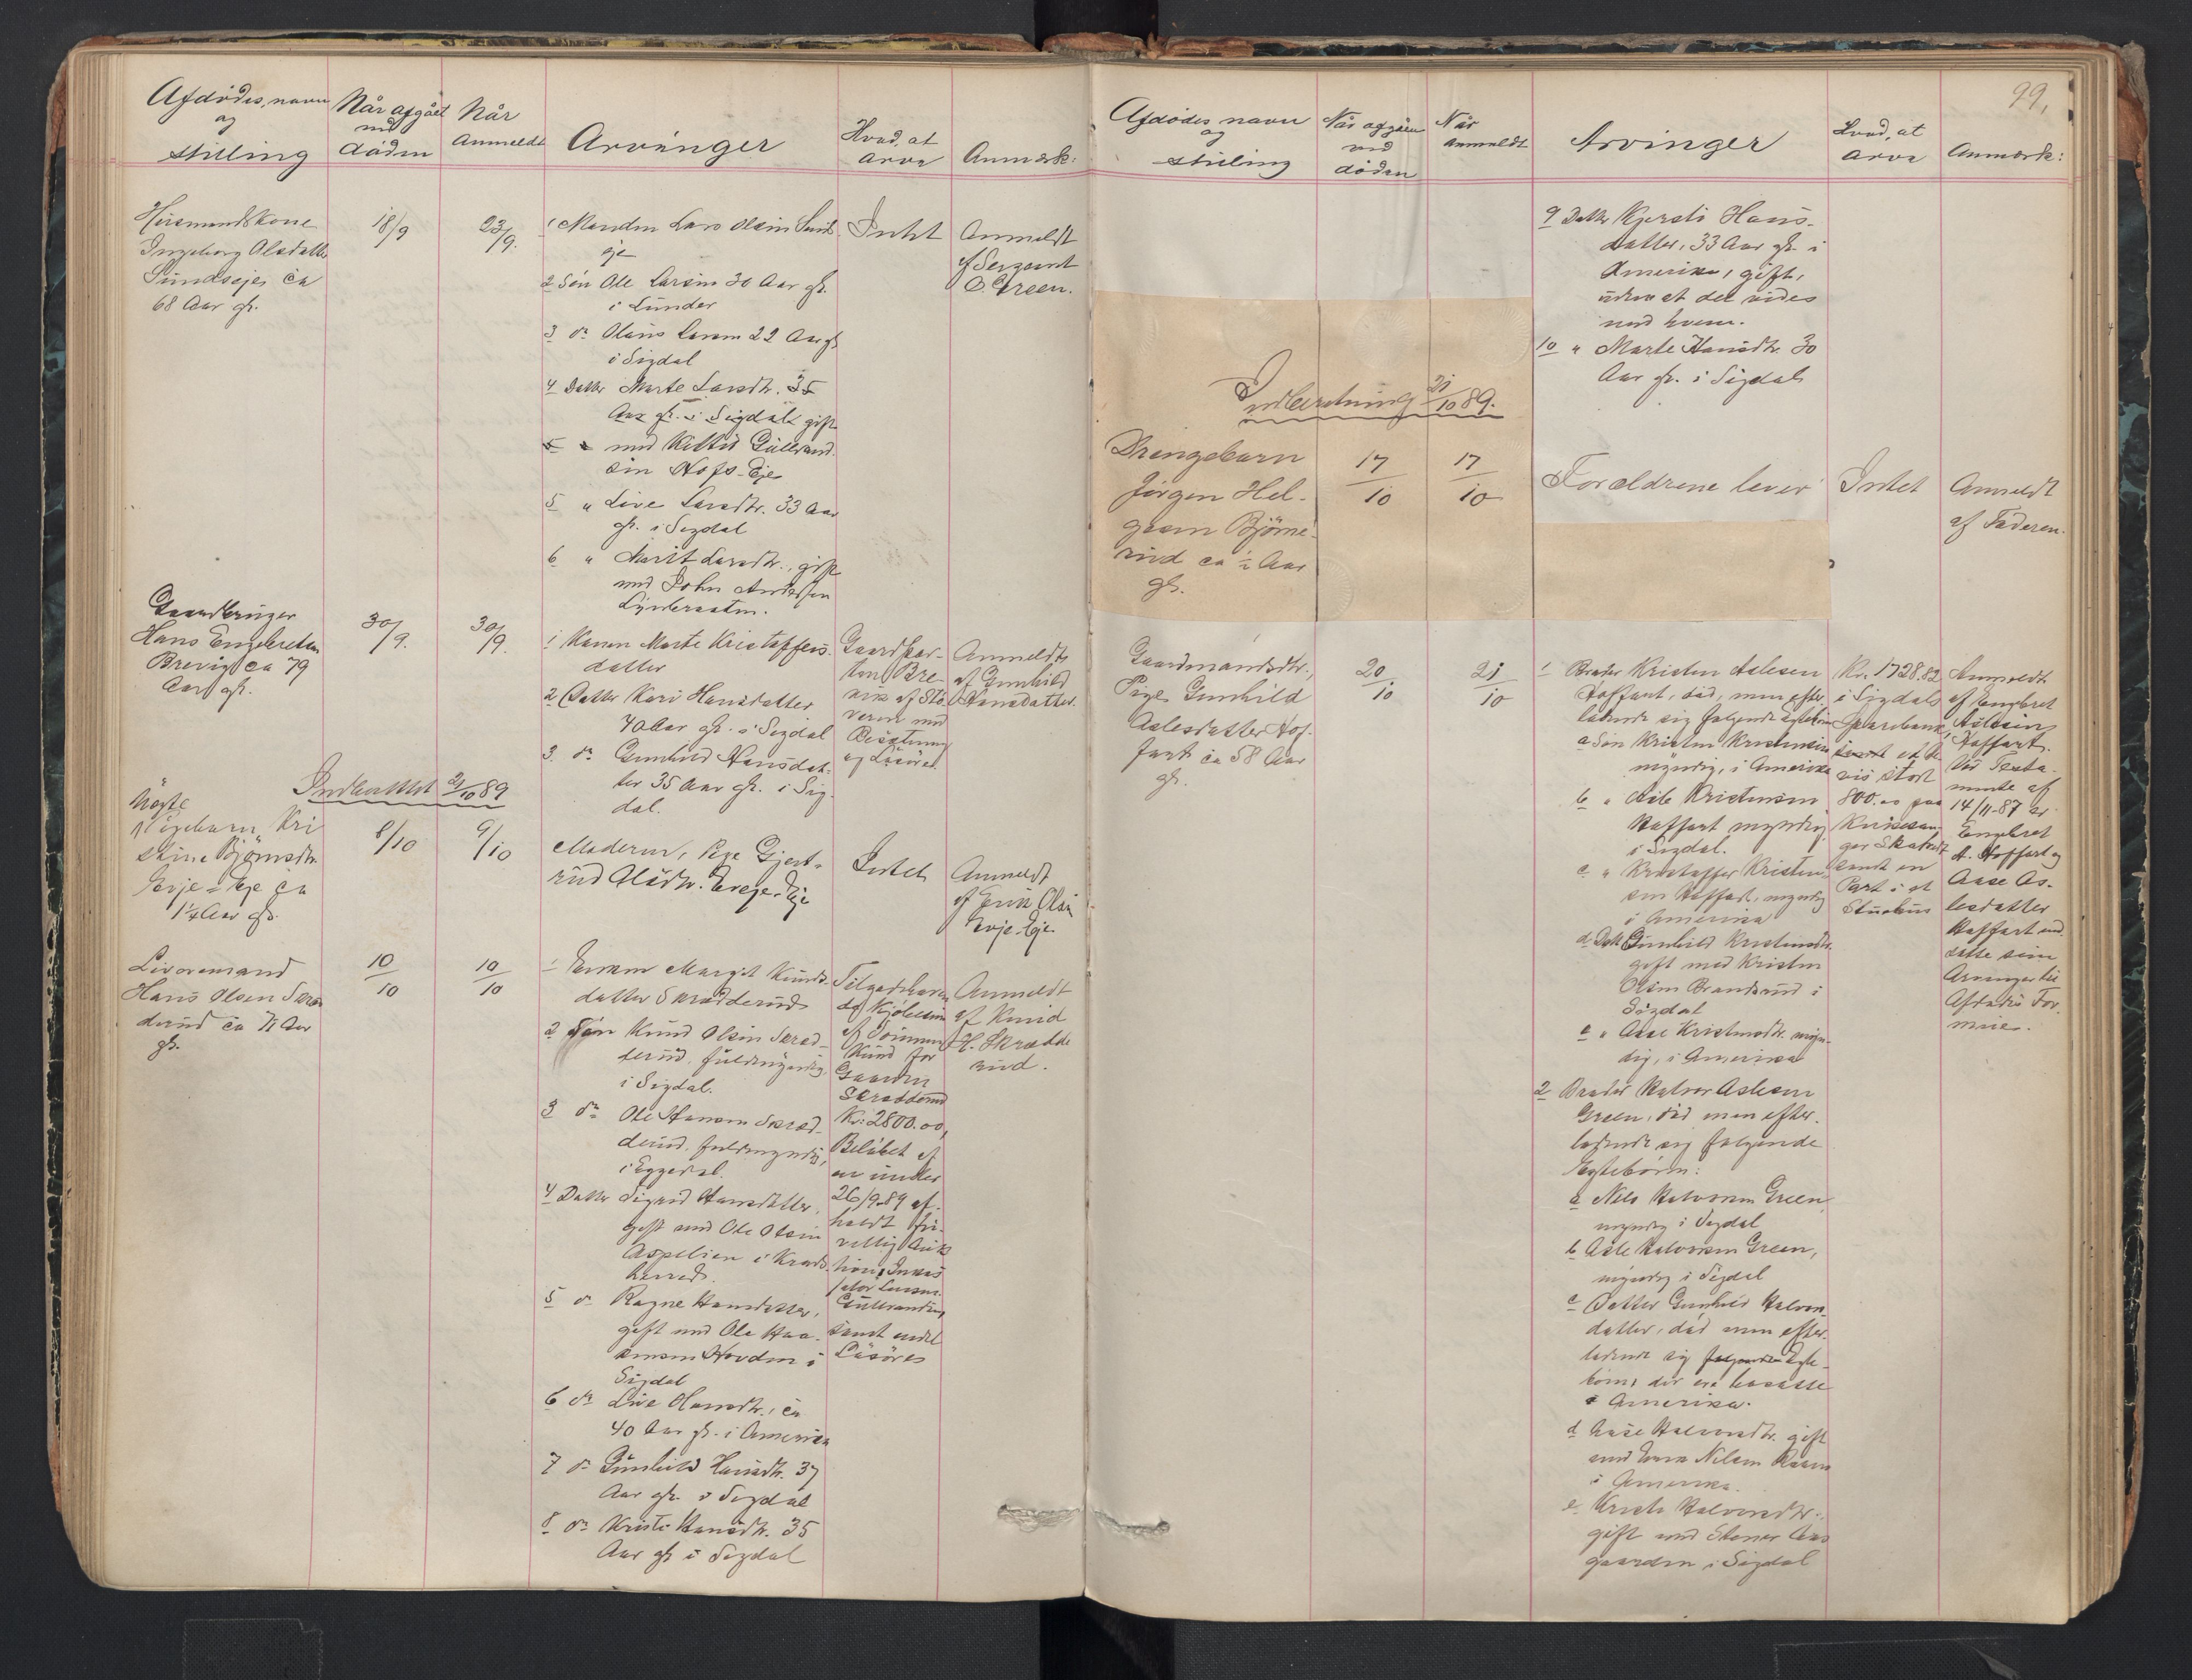 Afdödes navn
og
stilling
Når afgået
ved
döden
Når
Anmeldt
Arvinger
Hvad, at
arve
Anmærk:
Husmandskone
Ingeborg Olsdatter
Sundseje, ca
68 Aar gl.
18/9
23/9.
1 Manden Lars Olsen Sunds
eje
2 Sön Ole Larsen 30 Aar gl.
i Lunder
3 do Olaus Larsen 22 Aar gl
i Sigdal
4 Datter Marte Larsdtr. 35
Aar gl. i Sigdal gift
med Kittil Gulbrand-
sen Hofs-Eje
5 " Live Larsdtr. 33 Aar
gl. i Sigdal
6 " Marit Larsdtr., gift
med John Andersen
Intet
Anmeldt
af Sergeant
O. Green.
Gaardbruger
Hans Engebretsen
Brevig ca 79
Aar gl.
30/9.
30/9.
1 Konen Marte Kristoffers-
datter
2 Datter Kari Hansdatter
40 Aar gl. i Sigdal
3 do Gunhild Hansdat-
ter 35 Aar gl. i Sig-
dal.
Gaardpar-
ten Bre-
vik af Stö-
veren med
Besætning
og Lösöre.
Anmeldt
af Gunhild
Hansdatter.
Indberettet 2/10 89
Uægte
Pigebarn Kri
stine Björnsdtr.
Evje-Eje ca
1 1/4 Aar gl.
8/10
9/10
Moderen, Pige Gjert-
rud Olsdtr. Evje-Eje
Intet
Anmeldt
af Erik Olsen
Evje-Eje.
Livöremand
Hans Olsen Skræd
derud ca 71 Aar
gl.
10/10
10/10
1 Enken Margit Knuds-
datter Skrædderud
2 Sön Knud Olsen Skræd-
derud, fuldmyndig,
i Sigdal.
3 do Ole Hansen Skræd-
derud, fuldmyndig,
i Eggedal.
4 Datter Sigrid Hansdatter,
gift med Ole Olsen
Aspelien i Kröds-
herred.
5 do Ragne Hansdatter,
gift med Ole Haa-
kensen Hovden i
Sigdal
6 do Live Hansdtr., ca
40 Aar gl. i Amerika
7 do Gunhild Hansdtr. 37
Aar gl. i Sigdal
8 do Kristi Hansdtr. 35
Aar gl. i Sigdal
Tilgodehaven
de Kjöbesum
af Sönnen
Knud for
Gaarden
Skrædderud
Kr: 2800.00,
Belöbet af
en under
26/9-89 af-
holdt fri-
villig Auk
tion, Inkas
sator Lensm.
Gulbrandsen,
samt endel
Lösöre
Anmeldt
af Knud
H. Skrædde
rud.
99.
Afdödes navn
og
stilling
Når afgåen
ved
döden
Når
anmeldt
Arvinger
Hvad, at
arve
Anmærk:
9 Datter Kjersti Hans-
datter, 33 Aar gl. i
Amerika, gift,
uden at det vides
med hvem.
10 " Marte Hansdtr. 30
Aar gl. i Sigdal
Indberetning 21/10 89.
Drengebarn
Jörgen Hel-
gesen Björne-
rud ca 1/2 Aar
gl.
17/10
17/10
Forældrene lever
Intet
Anmeldt
af Faderen.
Gaardmandsdtr.,
Pige Gunhild
Aslesdatter Hof-
fart ca 58 Aar
gl.
20/10
21/10
1 Broder Kristen Aslesen
Hoffart, död, men efter
ladende sig fölgende Egtebörn
a Sön Kristen Kristensen
myndig, i Amerika
b " Asle Kristensen
Hoffart myndig
i Sigdal.
c " Kristoffer Kristen-
sen Hoffart, myndig
i Amerika
d Datt Gunhild Kristensdtr.
gift med Kristen
Olsen Brandsrud i
Sigdal
e " Aase Kristensdtr. myn-
dig, i Amerika
2 Broder Halvor Aslesen
Green, död men efter-
ladende sig fölgende
Egtebörn:
a Nils Halvorsen Green,
myndig i Sigdal
b Asle Halvorsen Green,
myndig i Sigdal
c Datter Gunhild Halvors-
datter, död men efter-
ladende sig fölgende Egte-
börn, der ere bosatte
i Amerika.
d Aase Halvorsdtr. gift
med Nilsen
i Amerika.
e Kristi Halvorsdtr.
gift med Stener Aas
gaarden i Sigdal
Kr. 1728.82
i Sigdals
Sparebank,
samt et Be
vis stort
800.00 paa
samt en
Part i et
Stuehus
Anmeldt
af Engebret
Aslesen
Hoffart.
Ved Testa-
mente af
14/11-87 er
Engebret
A. Hoffart og
Aase As-
lesdatter
Hoffart ind
satte som
Arvinger til
Afdödes For-
mue.